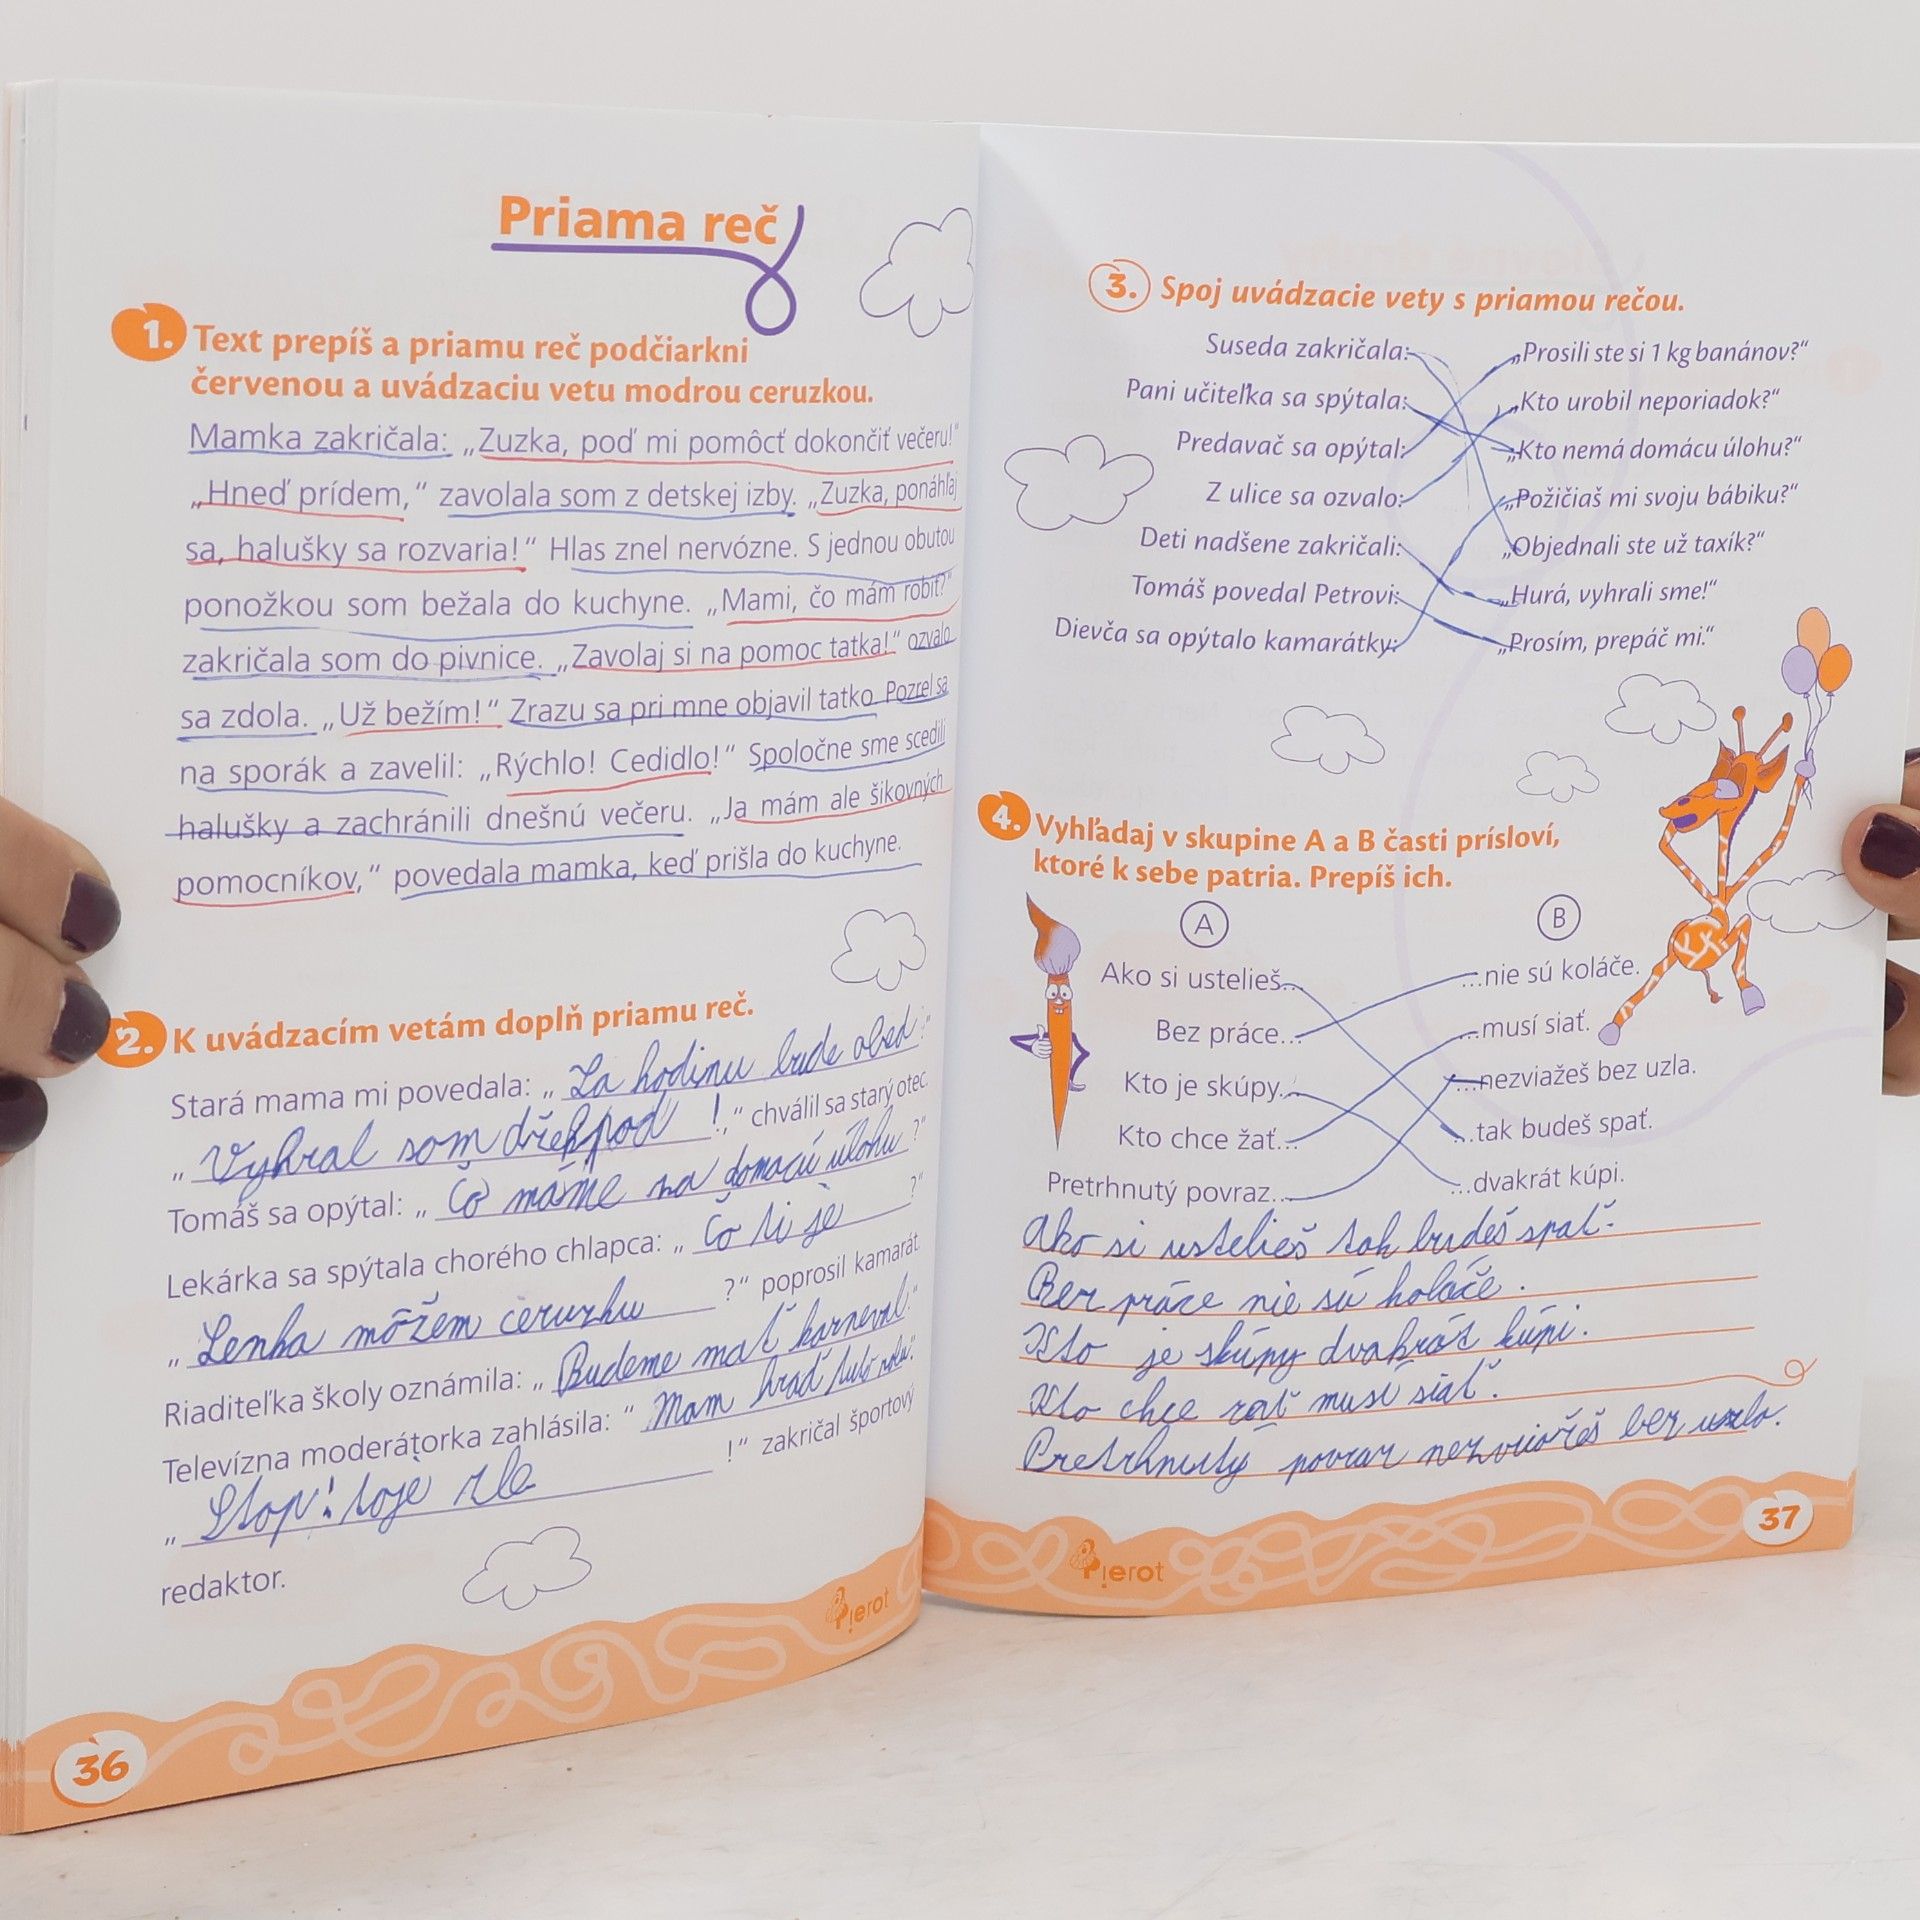 Priama reč
1. Text prepíš a priamu reč podčiarkni
červenou a uvádzaciu vetu modrou ceruzkou.
Mamka zakričala: „Zuzka, poď mi pomôcť dokončiť večeru!“
„Hneď prídem,“ zavolala som z detskej izby. „Zuzka, ponáhľaj
sa, halušky sa rozvaria!“ Hlas znel nervózne. S jednou obutou
ponožkou som bežala do kuchyne. „Mami, čo mám robiť?“
zakričala som do pivnice. „Zavolaj si na pomoc tatka!“ ozvalo
sa zdola. „Už bežím!“ Zrazu sa pri mne objavil tatko. Pozrel sa
na sporák a zavelil: „Rýchlo! Cedidlo!“ Spoločne sme scedili
halušky a zachránili dnešnú večeru. „Ja mám ale šikovných
pomocníkov,“ povedala mamka, keď prišla do kuchyne.
2. K uvádzacím vetám doplň priamu reč.
Stará mama mi povedala: „Za hodinu bude obed!“
„Vyhral som !,“ chválil sa starý otec.
Tomáš sa opýtal: „Čo máme na domacú úlohu?“
Lekárka sa spýtala chorého chlapca: „Čo ti je ?“
„Lenka môžem ceruzku ?“ poprosil kamarát.
Riaditeľka školy oznámila: „Budeme mať karneval.“
Televízna moderátorka zahlásila: “Mam hrať tuto rolu.“
„Stop! toje zle !“ zakričal športový
redaktor.
Pierot
36
3. Spoj uvádzacie vety s priamou rečou.
Suseda zakričala: „Prosili ste si 1 kg banánov?“
Pani učiteľka sa spýtala: „Kto urobil neporiadok?“
Predavač sa opýtal: „Kto nemá domácu úlohu?“
Z ulice sa ozvalo: „Požičiaš mi svoju bábiku?“
Deti nadšene zakričali: „Objednali ste už taxík?“
Tomáš povedal Petrovi: „Hurá, vyhrali sme!“
Dievča sa opýtalo kamarátky: „Prosím, prepáč mi.“
4. Vyhľadaj v skupine A a B časti prísloví,
ktoré k sebe patria. Prepíš ich.
A B
Ako si ustelieš... ...nie sú koláče.
Bez práce... ...musí siať.
Kto je skúpy... ...nezviažeš bez uzla.
Kto chce žať... ...tak budeš spať.
Pretrhnutý povraz... ...dvakrát kúpi.
Ako si ustelieš tak budeš spať.
Bez práce nie sú koláče.
Kto je skúpy dvakrát kúpi.
Kto chce zať musí siať.
Pretrhnutý povraz nezviažeš bez uzla.
Pierot
37